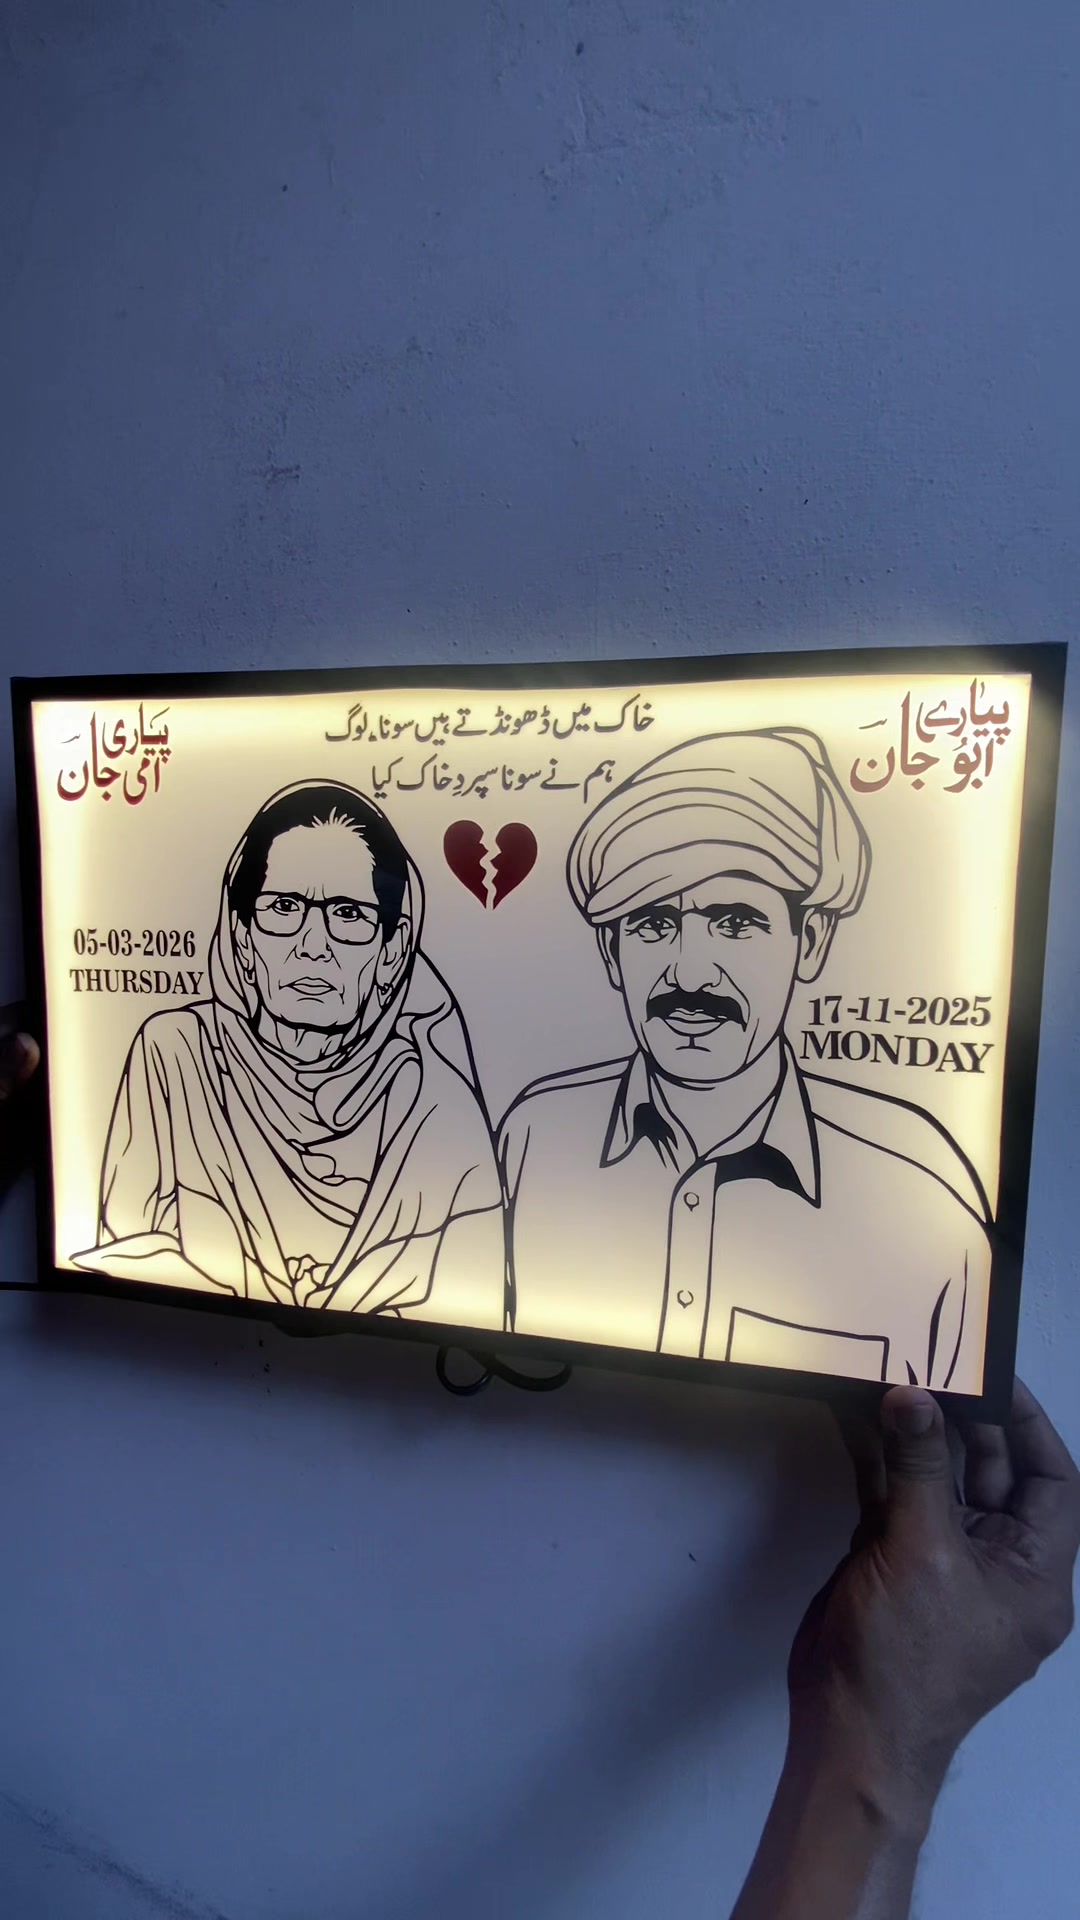 پیاری
امی جان
خاک میں ڈھونڈتے ہیں سونا لوگ
ہم نے سونا سپردِ خاک کیا
پیارے
ابوُ جان
05-03-2026
THURSDAY
17-11-2025
MONDAY